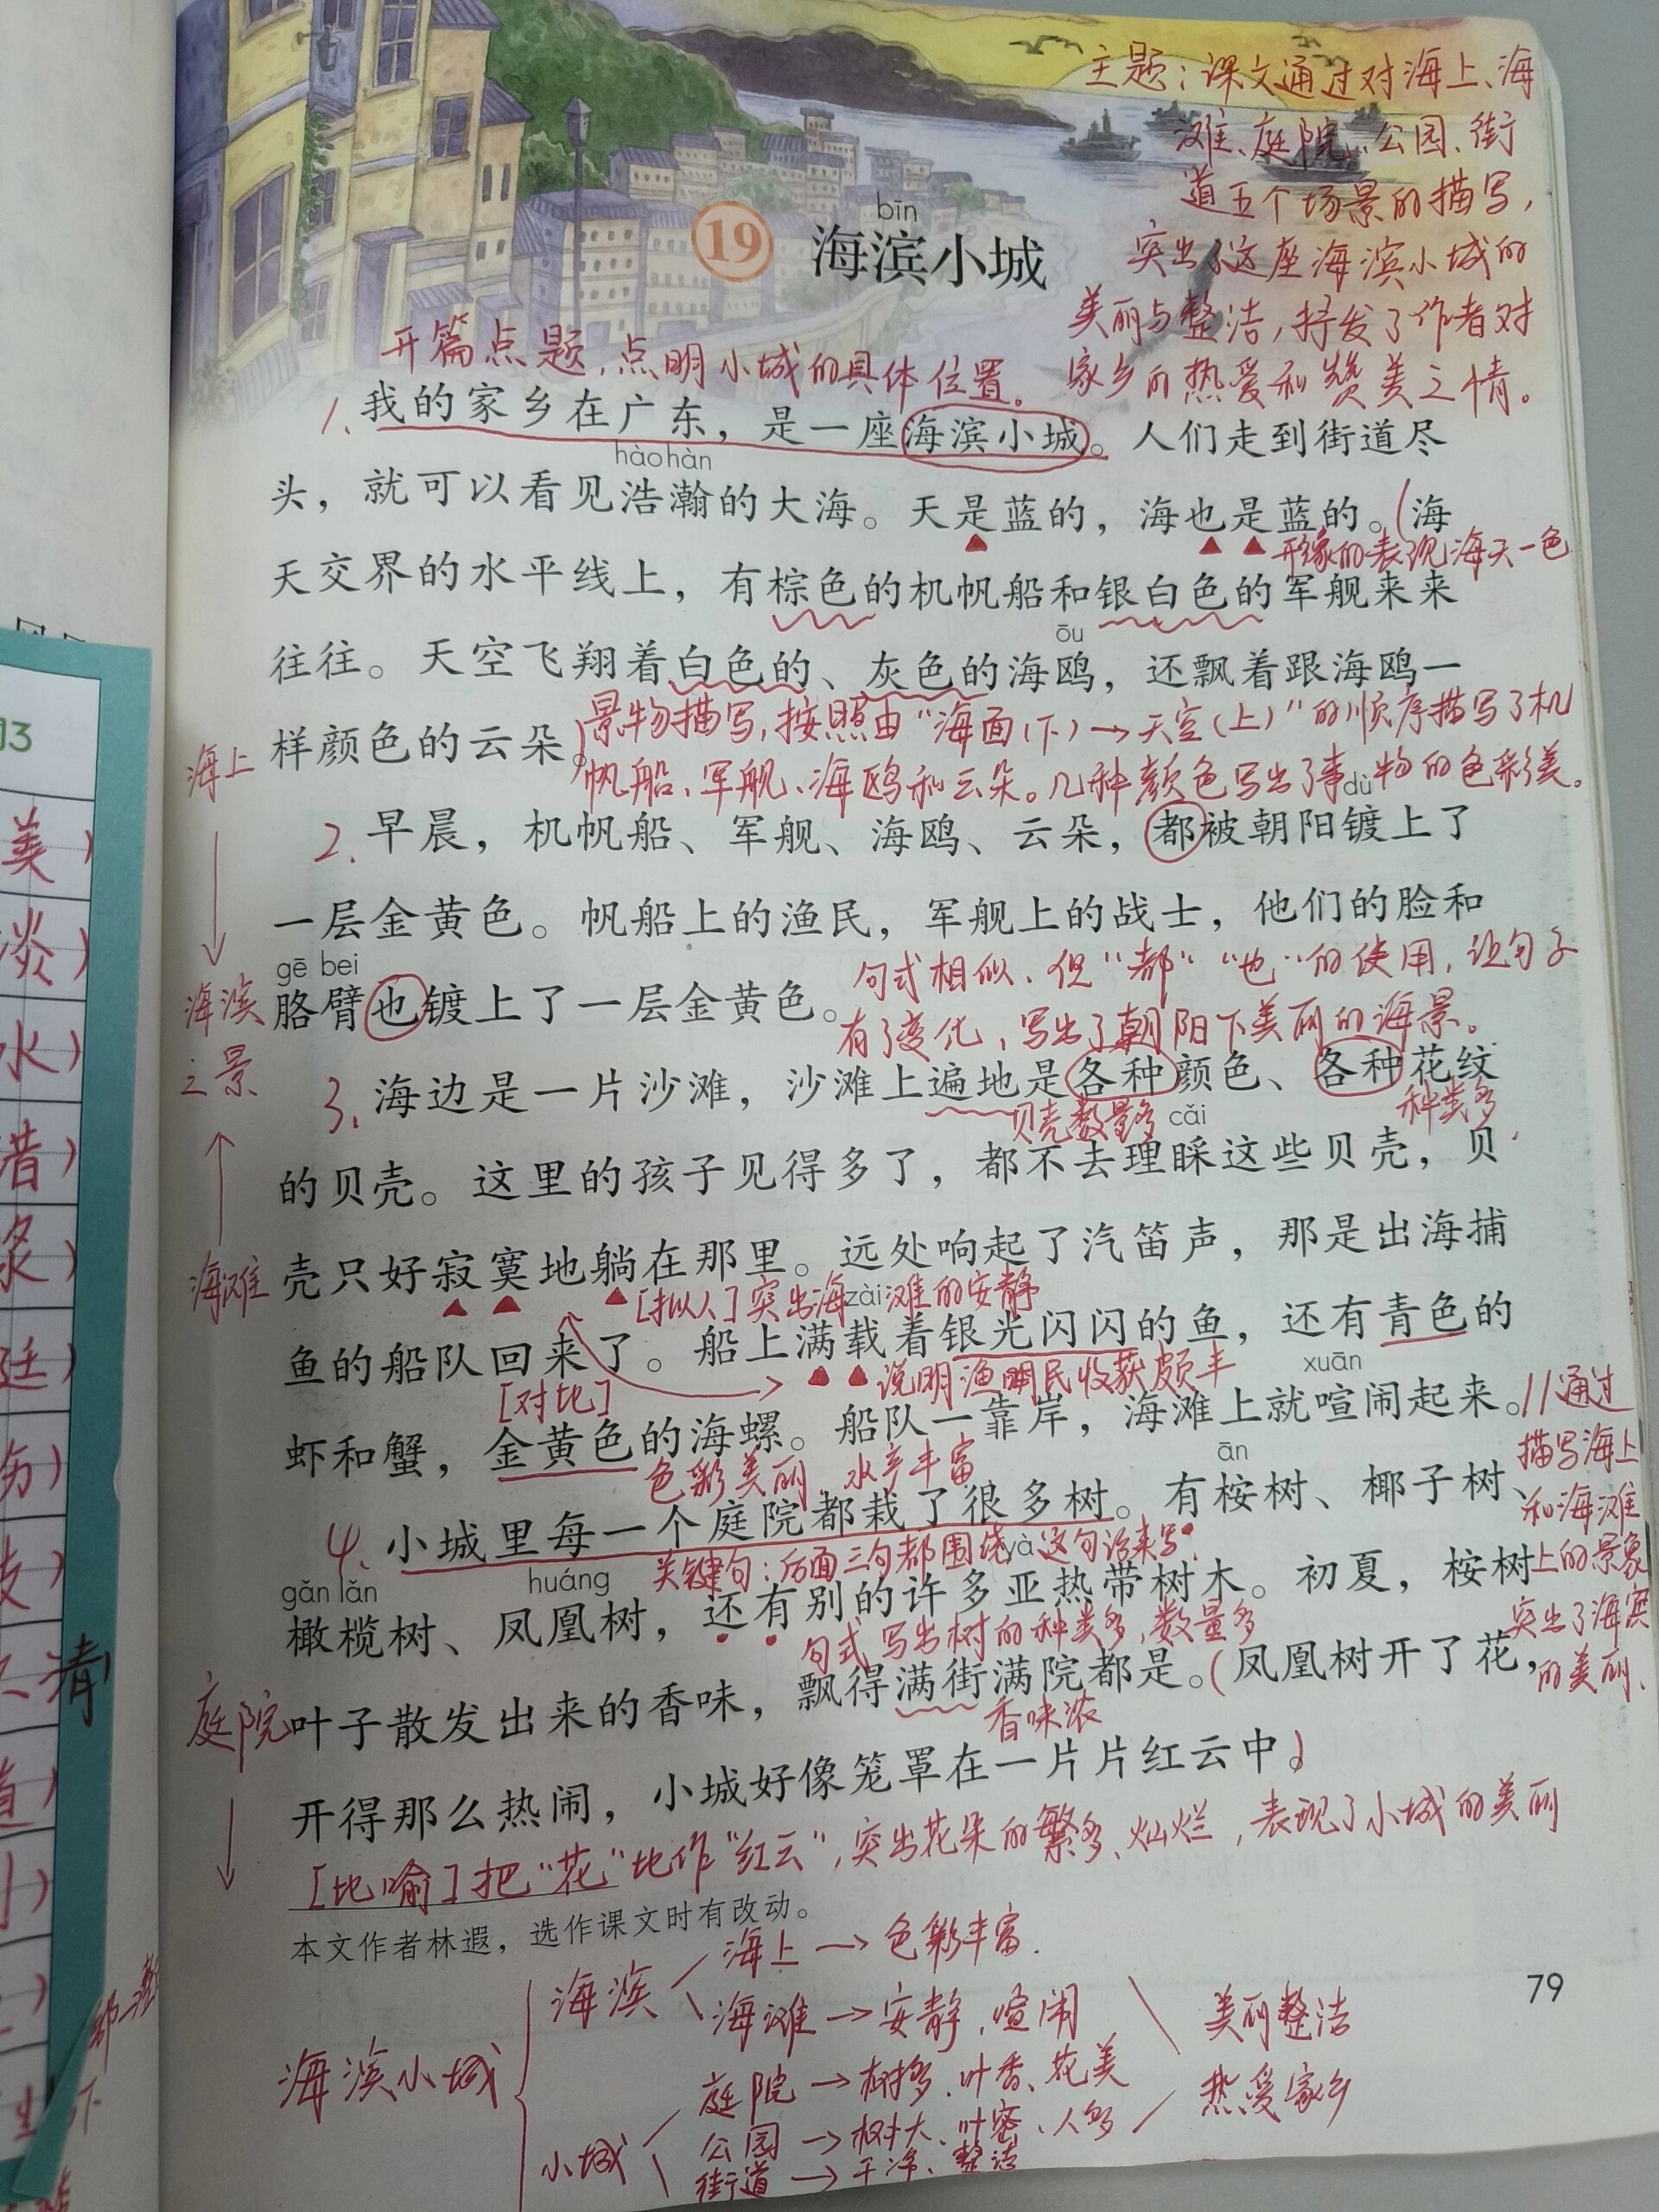 主题：课文通过对海上、海
滩、庭院、公园、街
道五个场景的描写，
突出了这座海滨小城的
美丽与整洁，抒发了作者对
家乡的热爱和赞美之情。
bīn
19 海滨小城
开篇点题，点明小城的具体位置。
1. 我的家乡在广东，是一座海滨小城。人们走到街道尽
hào hàn
头，就可以看见浩瀚的大海。天是蓝的，海也是蓝的。(海
形象的表现海天一色
天交界的水平线上，有棕色的机帆船和银白色的军舰来来
ōu
往往。天空飞翔着白色的、灰色的海鸥，还飘着跟海鸥一
景物描写，按照由“海面(下)→天空(上)”的顺序描写了机
样颜色的云朵。)
帆船、军舰、海鸥和云朵。几种颜色写出了事物的色彩美。
海上
dù
2. 早晨，机帆船、军舰、海鸥、云朵，都被朝阳镀上了
一层金黄色。帆船上的渔民，军舰上的战士，他们的脸和
句式相似，但“都”“也”的使用，让句子
gē bei
胳臂也镀上了一层金黄色。
有了变化，写出了朝阳下美丽的海景。
海滨
之景
3. 海边是一片沙滩，沙滩上遍地是各种颜色、各种花纹
贝壳数量多
种类多
cǎi
的贝壳。这里的孩子见得多了，都不去理睬这些贝壳，贝
海滩
壳只好寂寞地躺在那里。远处响起了汽笛声，那是出海捕
[拟人]突出海滩的安静
zài
鱼的船队回来了。船上满载着银光闪闪的鱼，还有青色的
[对比]
说明渔民收获颇丰
xuān
虾和蟹，金黄色的海螺。船队一靠岸，海滩上就喧闹起来。
色彩美丽，水产丰富
//通过
描写海上
和海滩
上的景象
突出了海滨
的美丽、
ān
4. 小城里每一个庭院都栽了很多树。有桉树、椰子树、
关键句：后面三句都围绕这句话来写
gǎn lǎn
huáng
yà
橄榄树、凤凰树，还有别的许多亚热带树木。初夏，桉树
句式 写出树的种类多，数量多
庭院
叶子散发出来的香味，飘得满街满院都是。(凤凰树开了花，
香味浓
开得那么热闹，小城好像笼罩在一片片红云中。)
[比喻]把“花”比作“红云”，突出花朵的繁多、灿烂，表现了小城的美丽
本文作者林遐，选作课文时有改动。
79
海滨小城
海滨
海上→色彩丰富.
海滩→安静，喧闹
小城
庭院→树多、叶香、花美
公园→树大、叶密、人多
街道→干净、整洁
美丽整洁
热爱家乡
美)
淡)
水)
昔)
廷)
伤)
支)
清
道)